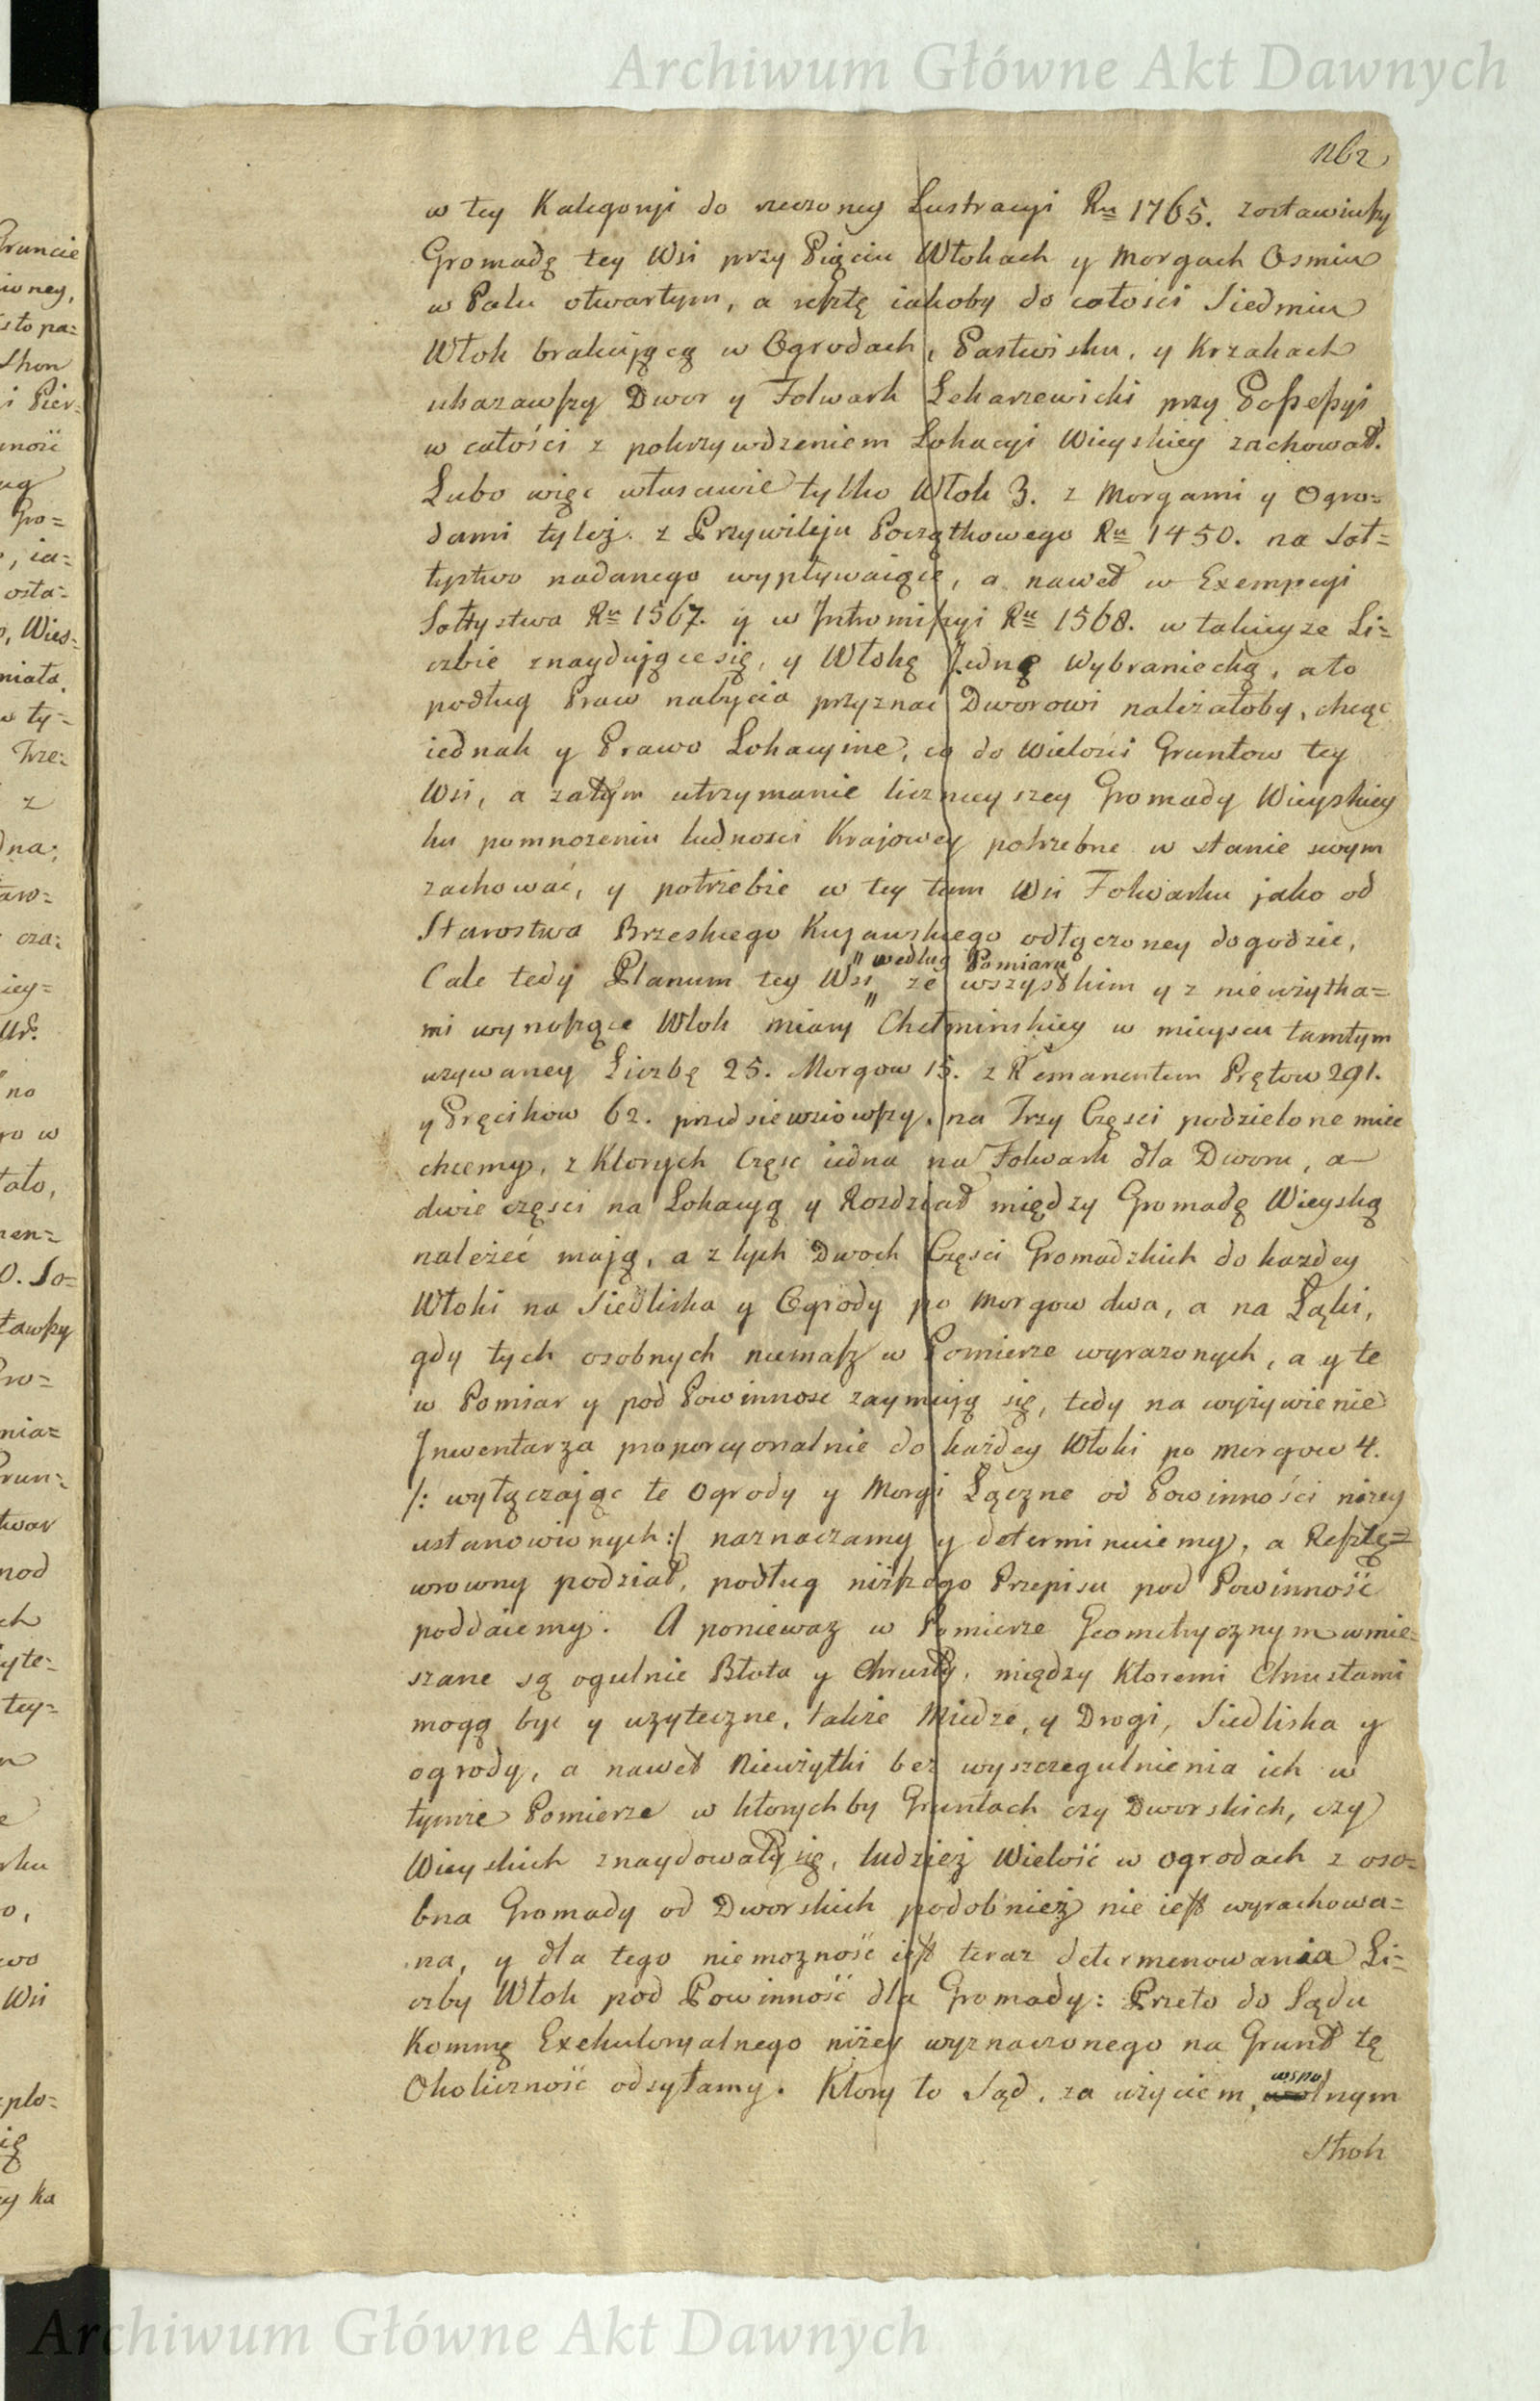 Archiwum Główne Akt Dawnych
w tey Kategoryi do rzeczoney Lustracyi Ru 1765. zostawiwszy
Gromadę tey Wsi przy Pięciu Włokach y Morgach Osmiu
w Polu otwartym, a resztę iakoby do całości Siedmiu
Włok brakuiącą w Ogrodach, Pastwisku, y Krzakach
ukazawszy Dwor y Folwark Lekarzewicki przy Possessyi
w całości z pokrzywdzeniem Lokacyi Wieyskiey zachował.
Lubo więc własciwie tylko Włok 3. z Morgami y Ogro=
dami tyleż. z Przywileju Początkowego Ru 1450. na Soł=
tystwo nadanego wypływaiące, a nawet w Exempcyi
Sołtystwa Ru 1567. y w Intromissyi Ru 1568. w takieyze Li=
czbie znayduiące się, y Włokę Jednę Wybraniecką, ato
podług Praw nabycia przyznać Dworowi należałoby, chcąc
iednak y Prawo Lokacyine, co do Wielości Gruntow tey
Wsi, a zatym utrzymanie licznieyszey Gromady Wieyskiey
ku pomnozeniu ludnosci Krajowey potrzebne w stanie swym
zachować, y potrzebie w tey tam Wsi Folwarku jako od
Starostwa Brzeskiego Kujawskiego odłączoney dogodzić,
" według Pomiaru
Całe tedy Planum tey Wsi " ze wszystkim y z niewżytka=
mi wynoszące Włok miary Chełminskiey w mieyscu tamtym
uzywaney Liczbę 25. Morgow 15. z Remanentem Prętow 291.
y Pręcikow 62. przedsiewziowszy, na Trzy Częsci podzielone miec
chcemy, z Ktorych Częsc iedna na Folwark dla Dworu, a
dwie częsci na Lokacyą y Rozdział między Gromadę Wieyską
należeć mają, a z tych Dwoch Częsci Gromadzkich do kazdey
Włoki na Siedliska y Ogrody po Morgow dwa, a na Łąki,
gdy tych osobnych niemasz w Pomierze wyrazonych, a y te
w Pomiar y pod Powinnosc zaymują się, tedy na wyżywienie
Inwentarza proporcyonalnie do każdey Włoki po morgow 4.
/: wyłączając te Ogrody y Morgi Łączne od Powinności niżey
ustanowionych :/ naznaczamy y determinuiemy, a Resztę=
wrowny podział, podług niższego Przepisu pod Powinność
poddaiemy. A poniewaz w Pomierze Geometrycznym wmie=
szane są ogulnie Błota y Chrusty, między Ktoremi Chrustami
mogą byc y uzyteczne, także Miedze, y Drogi, Siedliska y
ogrody, a nawet Niewżytki bez wyszczegulnienia ich w
tymże Pomierze w ktorychby Gruntach czy Dworskich, czy
Wieyskich znaydowały się, tudzież Wielość w ogrodach z oso=
bna Gromady od Dworskich podobnież nie iest wyrachowa=
na, y dla tego niemozność iest teraz determenowania Li=
czby Włok pod Powinność dla Gromady: Przeto do Sądu
Kommę Exekutoryalnego niżey wyznaczonego na Grunt tę
Okoliczność odsyłamy. Ktory to Sąd, za użyciem, wspolnym
Stron
Archiwum Główne Akt Dawnych